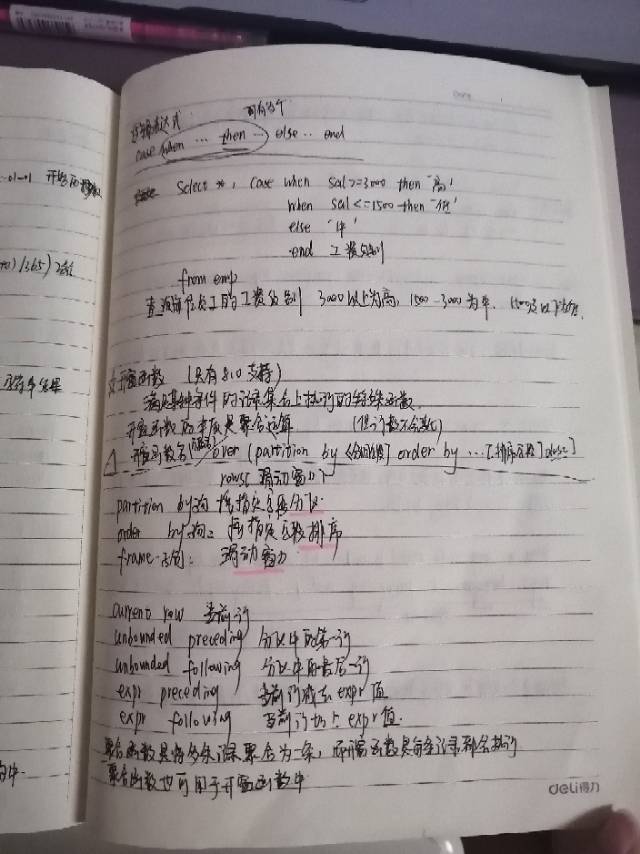 Date
可有多个
逻辑表达式
case when … then … else … end
Select *, case when sal>=3000 then '高'
when sal<=1500 then '低'
else '中'
end 工资级别
from emp
查询每位员工的工资级别 3000以上为高, 1500-3000为中, 1500及以下为低.
开窗函数 (只有8.0支持)
满足某种条件的记录集合上执行的特殊函数.
开窗函数的本质是聚合运算 (但行数不会变化)
开窗函数名() over (partition by <分组字段> order by … [排序字段] desc]
rows 滑动窗口
partition by子句 按指定字段分区.
order by子句: 按指定字段排序
frame子句: 滑动窗口
current row 当前行
unbounded preceding 分区中的第一行
unbounded following 分区中的最后一行
expr preceding 当前行减去expr值
expr following 当前行加上expr值.
聚合函数是将多条记录聚合为一条, 开窗函数是每条记录都会执行
聚合函数也可用于开窗函数中
deli得力
-01-01 开始的
/365)